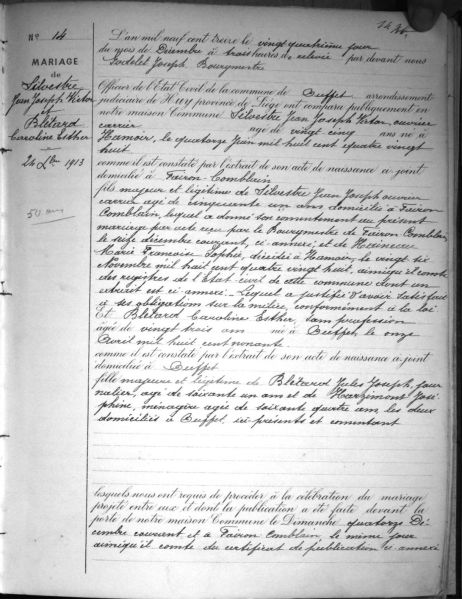 N° 14
MARIAGE
de
Silvestre
Jean Joseph Victor
&
Blétard
Caroline Esther
24 Xbre 1913
50 ans
L'an mil neuf cent treize le vingt quatrième jour
du mois de Décembre à trois heures de relevée par devant nous
Godelet Joseph Bourgmestre
Officier de l'Etat Civil de la commune de Ouffet arrondissement
judiciaire de Huy province de Liège ont comparu publiquement en
notre maison Commune Silvestre Jean Joseph Victor, ouvrier
carrier âgé de vingt cinq ans né à
Hamoir, le quatorze Juin mil huit cent quatre vingt
huit
comme il est constaté par l'extrait de son acte de naissance ci joint
domicilié à Fairon Comblain
fils majeur et légitime de Silvestre Jean Joseph ouvrier
carrier âgé de cinquante un ans domicilié à Fairon
Comblain, lequel a donné son consentement au présent
mariage par acte reçu par le Bourgmestre de Fairon Comblain,
le seize décembre courant, ci annexé; et de
Marie Françoise Sophie, décédée à Hamoir, le vingt six
Novembre mil huit cent quatre vingt huit, ainsi qu'il conste
des registres de l'Etat civil de cette commune dont un
extrait est ci annexé. Lequel a justifié d'avoir satisfait
à ses obligations sur la milice, conformément à la loi
Et Blétard Caroline Esther, sans profession
âgée de vingt trois ans né à Ouffet, le onze
Avril mil huit cent nonante
comme il est constaté par l'extrait de son acte de naissance ci joint
domicilié à Ouffet
fille majeure et légitime de Blétard Jules Joseph, jour
nalier, âgé de soixante un ans et de Harzimont José
phine, ménagère âgée de soixante quatre ans les deux
domiciliés à Ouffet, ici présents et consentant
lesquels nous ont requis de procéder à la célébration du mariage
projeté entre eux et dont la publication a été faite devant la
porte de notre maison Commune le Dimanche quatorze Dé
cembre courant et à Fairon Comblain, le même jour
ainsi qu'il conste du certificat de publication ci annexé